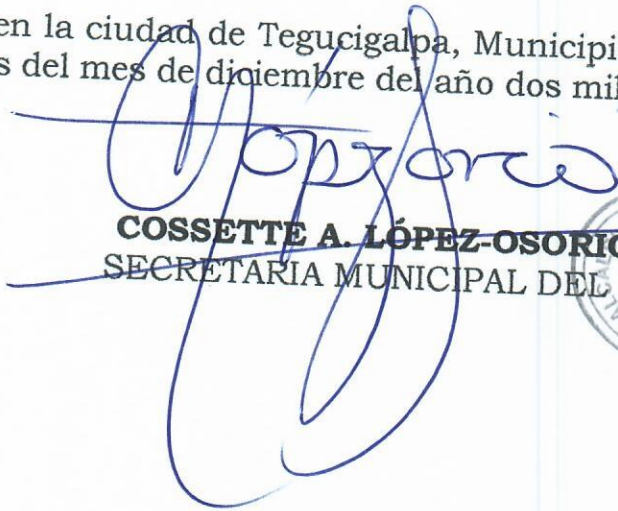 en la ciudad de Tegucigalpa, Municipi
s del mes de diciembre del año dos mil
COSSETTE A. LÓPEZ-OSORIO
SECRETARIA MUNICIPAL DEL